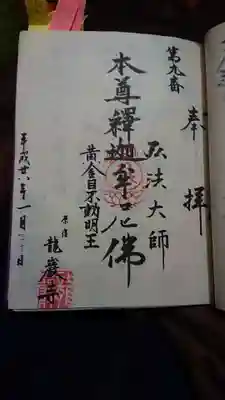 奉拝
第九番
弘法大師
本尊釋迦牟尼佛
黄金目不動明王
龍巖寺
平成廿八年一月